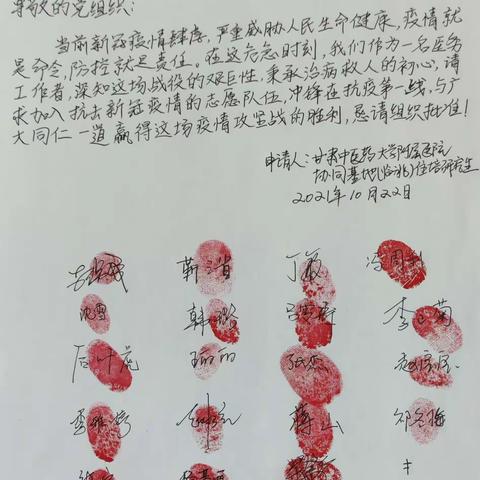 尊敬的党组织：
当前新冠疫情肆虐，严重威胁人民生命健康，疫情就
是命令，防控就是责任。在这危急时刻，我们作为一名医务
工作者，深知这场战役的艰巨性，秉承治病救人的初心，请
求加入抗击新冠疫情的志愿队伍，冲锋在抗疫第一线，与广
大同仁一道赢得这场疫情攻坚战的胜利，恳请组织批准！
申请人：甘肃中医药大学附属医院
协同基地(临洮)住培研究生
2021年10月22日
丁毅 冯周莉
沈雪 韩璐
丽丽 张杰
蒋山 邓冬梅